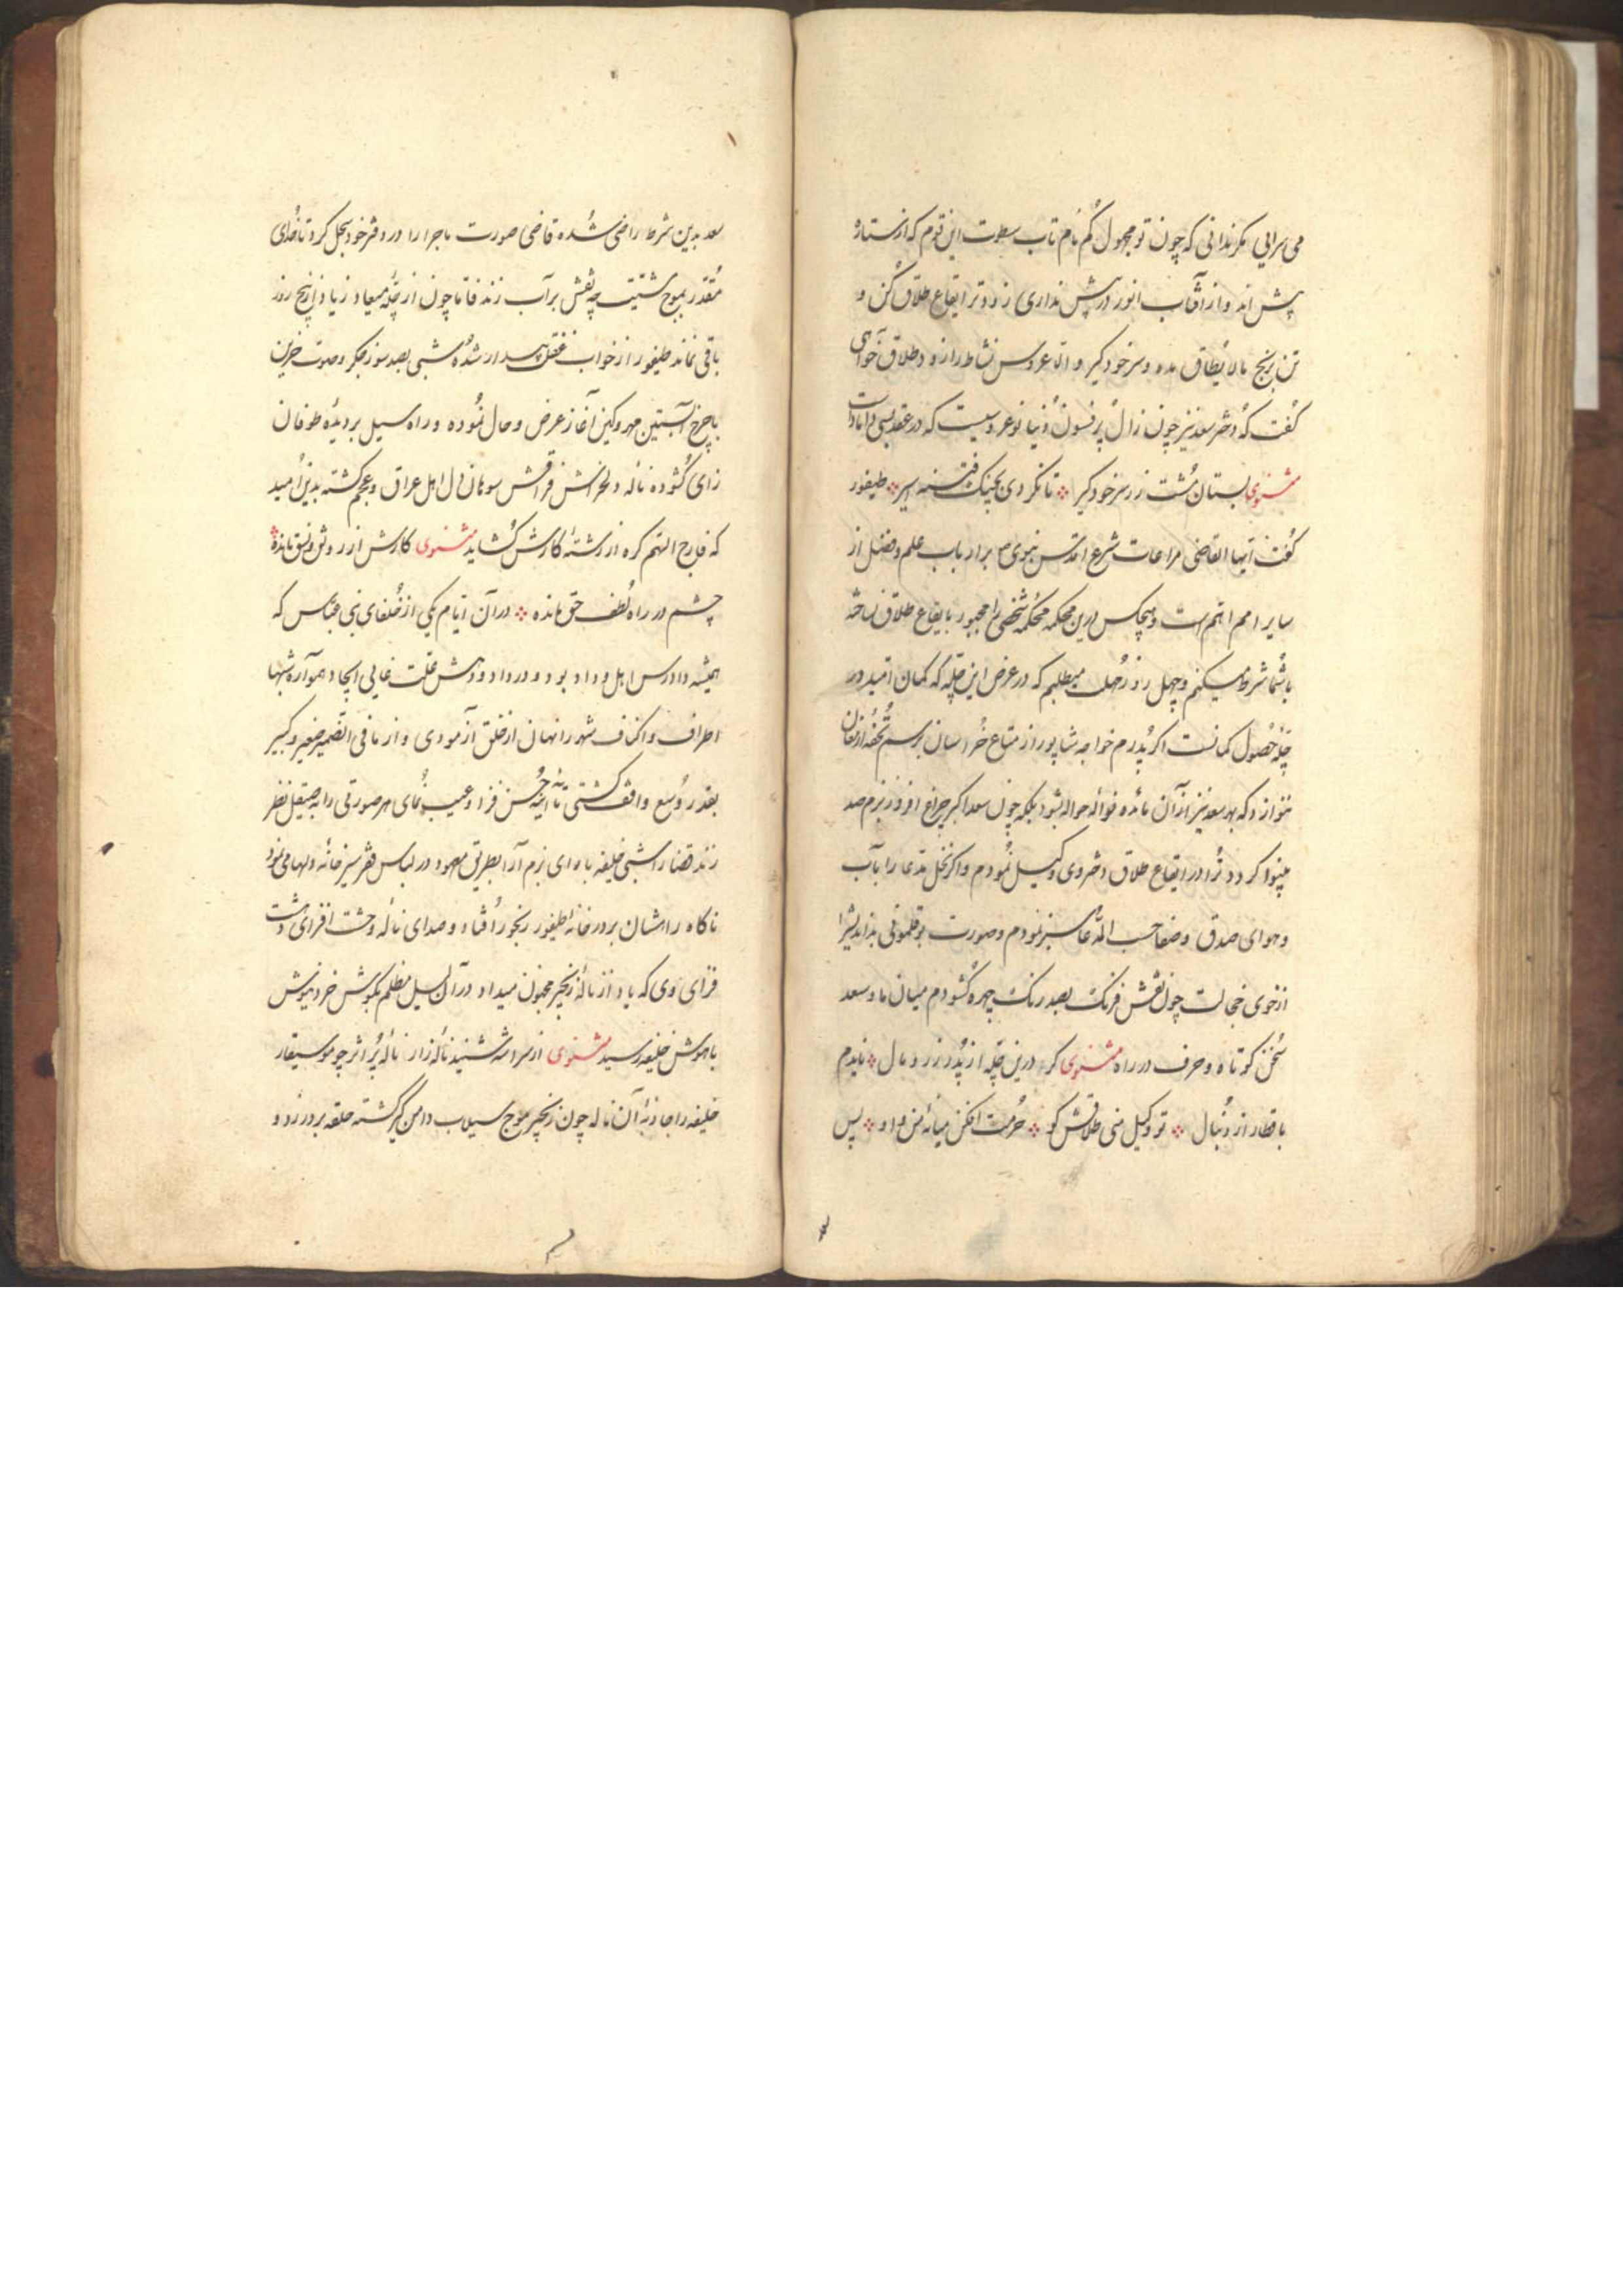 می سرایی مکر ندانی که چون تو مجهول کم نام تاب سطوت این قوم که از ستاره
پیش اند و از آفتاب انور در پیش نداری زودتر ایقاع طلاق کن و
تن برنج مالایطاق مده و سر خود گیر و الا عروس نشاط را زود طلاق خواهی
گفت که دختر سعد نیز چون زال پر فسون دنیا نوعروسیست که در عقد بسی داماد است
مثنوی بستان مشت زر سر خود گیر تا نکردی بچنک فتنه اسیر طیفور
گفت ایها القاضی مراعات شرع اقدس نبوی ص بر ارباب علم و فضل از
سایر امم اهم است و هیچکس درین محکمه محکمه شخصی را مجبور بایقاع طلاق نساخته
باشما شرط میکنم و چهل روز مهلت میطلبم که در عرض این چله که کمان امید در
چله حصول کمانست اکر پدرم خواجه شاپور از متاع خراسان برسم تحفه ارمغان
ننوازد که بهر سعد نیز از آن مائده نواله حواله شود بلکه چون سعد اکبر چراغ افروز بزم صد
بینوا کردد ترا در ایقاع طلاق دختر وی وکیل نمودم و اکر نخل مدعا را بآب
و هوای صدق و صفا حسب المدعا سبز نمودم و صورت بوقلمونی بد اندیش را
از خوی خجالت چون نقش فرنک بصد رنک چهره کشودم میان ما و سعد
سخن کوتاه و حرف در راه مثنوی کر درین چله از پدر زر و مال نایدم
با قطار از دنبال تو وکیل منی طلاقش کو حرمت افکن میانه من و او پس
سعد بدین شرط راضی شده قاضی صورت ماجرا را در دفتر خود سجل کرد تا خدای
مقتدر بموج مشیت چه نقش بر آب زند فاما چون از چله میعاد زیاد از پنج روز
باقی نماند طیفور از خواب غفلت بیدار شده شبی بصد سوز جکر و صوت حزین
با چرخ آبستین مهر و کین آغاز عرض و حال نموده و راه سیل بر دیده طوفان
زای کشوده ناله دلخراش فراقش سوهان دل اهل عراق و عجم کشته بدین امید
که فارج الهم کره از رشته کارش کشاید مثنوی کارش از رونق و نسق مانده
چشم در راه لطف حق مانده در آن ایام یکی از خلفای بنی عباس که
همیشه دادرس اهل وداد بود و در داد و دهش علت غایی ایجاد همواره شبها
اطراف و اکناف شهر را نهان از خلق آزمودی و از ما فی الضمیر صغیر و کبیر
بقدر وسع واقف کشتی تا آینه حسن فزا و عیب نمای هر صورتی را بصیقل نظر
زند قضا را شبی خلیفه با ه ای بزم آرا بطریق معهود در لباس فقر سیر خانه دلها می نمود
ناکاه راهشان بر در خانه طیفور رنجور افتاد و صدای ناله وحشت افزای دهشت
فزای وی که یاد از ناله زنجیر مجنون میداد در آن لیل مظلم بکوش خرد نیوش
با هوش خلیفه رسید مثنوی از سرا مه شنید ناله زار ناله پر اثر چو موسیقار
خلیفه را جاذبه آن ناله چون زنجیر موج سیلاب دامن گیر کشته حلقه بر در زد و